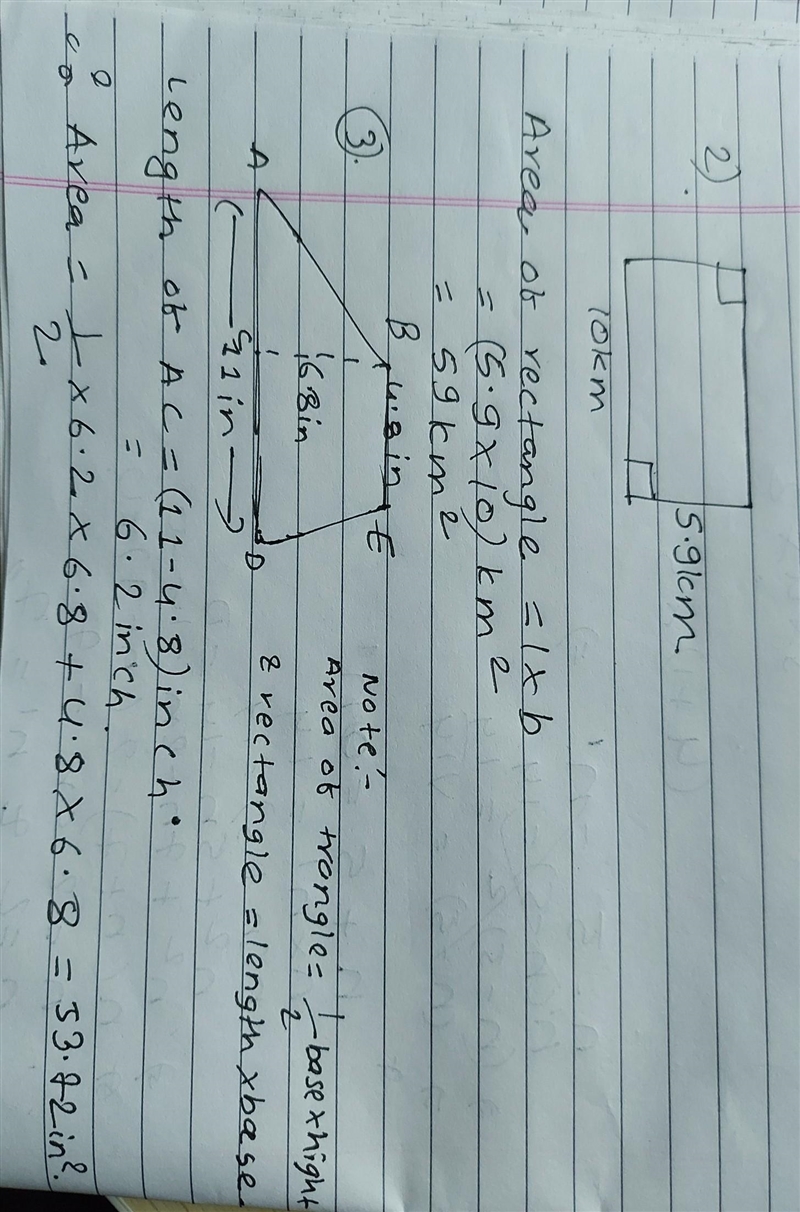 2).
5.9km
10km
Area of rectangle = l x b
= (5.9 x 10) km²
= 59 km²
3).
B 4.8in E
6.8in
A D
11in
Note:-
Area of trongle = 1/2 base x hight
& rectangle = length x base
Length of AC = (11 - 4.8) inch.
= 6.2 inch.
Area = 1/2 x 6.2 x 6.8 + 4.8 x 6.8 = 53.72 in².